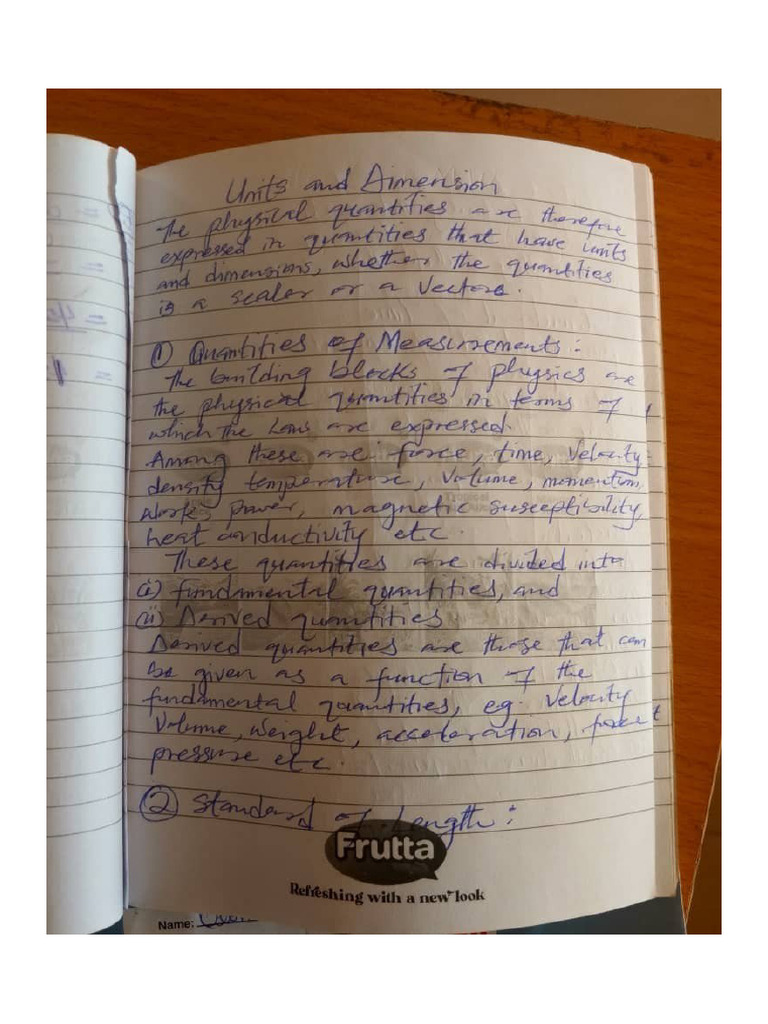 Units and Dimension
The physical quantities are therefore
expressed in quantities that have units
and dimensions, whether the quantities
is a scalar or a vectors.
① Quantities of Measurements:
The building blocks of physics are
the physical quantities in terms of
which the Laws are expressed.
Among these are force, time, velocity
density temperature, volume, momentum,
work, power, magnetic susceptibility,
heat conductivity etc.
These quantities are divided into
(i) fundamental quantities, and
(ii) Derived quantities
Derived quantities are those that can
be given as a function of the
fundamental quantities, eg. Velocity
Volume, weight, acceleration, force
pressure etc.
② Standard of Length:
Frutta
Refreshing with a new look
Name: